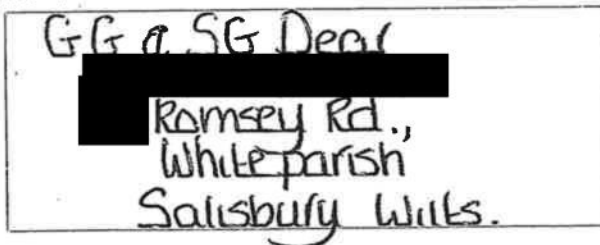 GG a SG Dear
Romsey Rd.,
Whiteparish
Salisbury Wilts.